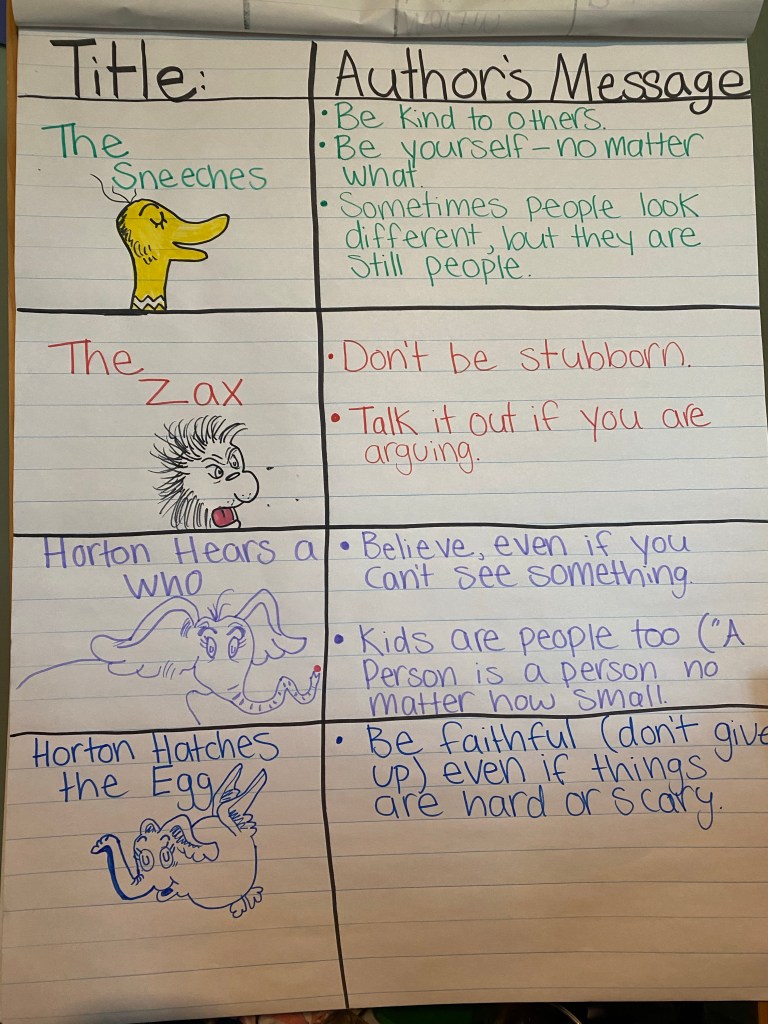 Title:
Author's Message
The
Sneeches
• Be Kind to others.
• Be yourself – no matter
what.
• Sometimes people look
different, but they are
still people.
The
Zax
• Don't be stubborn.
• Talk it out if you are
arguing.
Horton Hears a
Who
• Believe, even if you
can't see something.
• Kids are people too ("A
Person is a person no
matter how small.
Horton Hatches
the Egg
• Be faithful (don't give
up) even if things
are hard or scary.